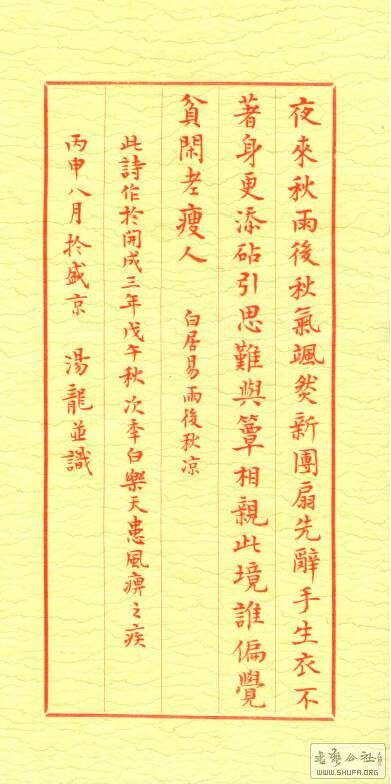 夜來秋雨後秋氣颯然新團扇先辭手生衣不
著身更添砧引思難與簟相親此境誰偏覺
貧閑老瘦人
白居易雨後秋凉
此詩作於開成三年戊午秋次季白樂天患風痹之疾
丙申八月於盛京
湯龍並識
WWW.SHUFA.ORG